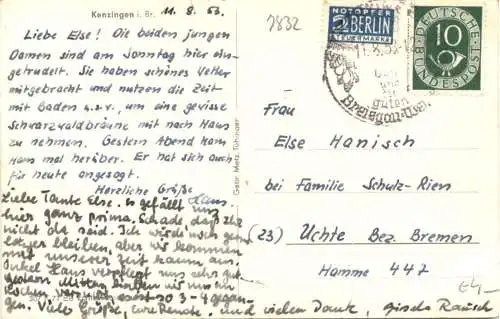 Kenzingen i. Br. 11. 8. 53.
Liebe Else! Die beiden jungen
Damen sind am Sonntag hier ein-
getrudelt. Sie haben schönes Wetter
mitgebracht und nutzen die Zeit
mit Baden u.s.w., um eine gewisse
Schwarzwaldbräune mit nach Haus
zu nehmen. Gestern Abend kam
Hans mal herüber. Er hat sich auch
für heute angesagt.
Herzliche Grüße
Hans.
Liebe Tante Else. Es gefällt uns
hier ganz prima. Schade, daß Ihr
nicht da seid. Ich würde noch gern
länger bleiben, aber wir kommen
mit unserer Zeit kaum aus.
Onkel Hans verpflegt uns sehr gut.
Gestern Mittag hielten wir uns ein
gen. Viele Grüße, Eure Renate. und vielen Dank, Gisela Rausch
7832
NOTOPFER
2 BERLIN
STEUERMARKE
DEUTSCHE
BUNDESPOST
10
guten
Gebr. Metz, Tübingen
Frau
Else Hanisch
bei Familie Schulz-Rien
(23) Uchte Bez. Bremen
Hamme 442
E4,-